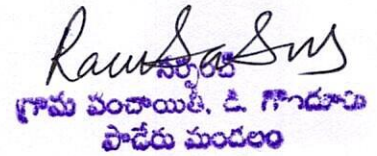 సర్పంచ్
గ్రామ పంచాయితీ, డి. గొందూరు
పాడేరు మండలం